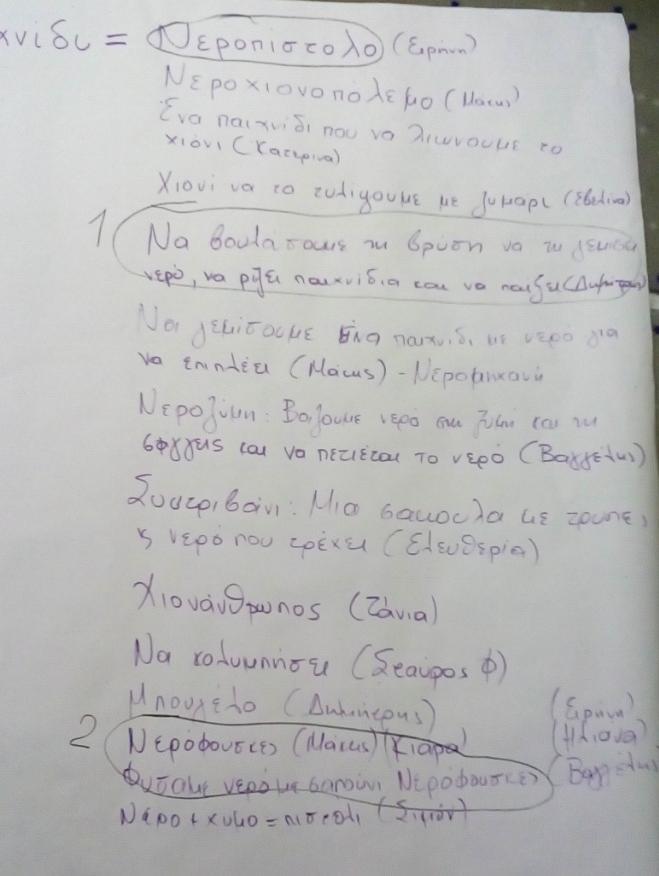 χνιδι = Νεροπίστολο (Ειρήνη)
Νεροχιονοπόλεμο (Μάκης)
Ένα παιχνίδι που να λιώνουμε το
χιόνι (Κατερίνα)
Χιόνι να το τυλίγουμε με ζυμάρι (Εβελίνα)
1 Να βουτάξουμε τη βρύση να τη γεμίσει
νερό, να ρίξει παιχνίδια και να παίξει (Δημήτρης)
Να γεμίσουμε ένα παιχνίδι με νερό για
να επιπλέει (Μάκης) - Νερομηχανή
Νεροζύμη: Βάζουμε νερό στη ζύμη και τη
σφίγγεις και να πετιέται το νερό (Βαγγέλης)
Συντριβάνι: Μια σακούλα με τρύπες
κ νερό που τρέχει (Ελευθερία)
Χιονάνθρωπος (Τάνια)
Να κολυμπήσει (Σταύρος Φ)
Μπουγέλο (Δημήτρης) (Ειρήνη)
2 Νερόφουσκες (Μάκης) (Κιάρα) (Ηλιάνα)
Φυσάμε νερό με σαπούνι Νερόφουσκες (Βαγγέλης)
Νερό + χυμό = πιστόλι